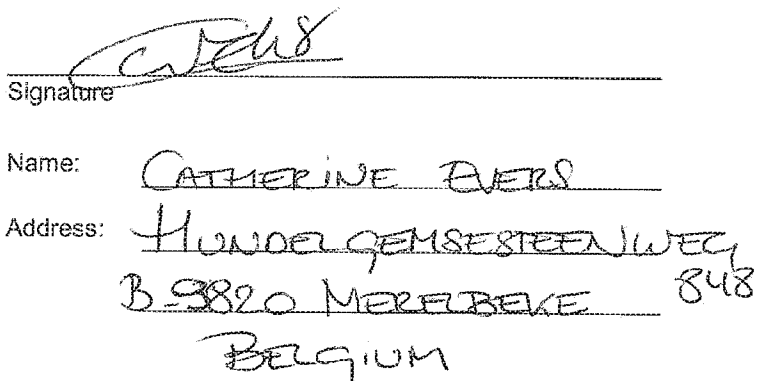 Signature
Name: CATHERINE EVERS
Address: HUNDELGEMSESTEENWEG
848
B-9820 MERELBEKE
BELGIUM